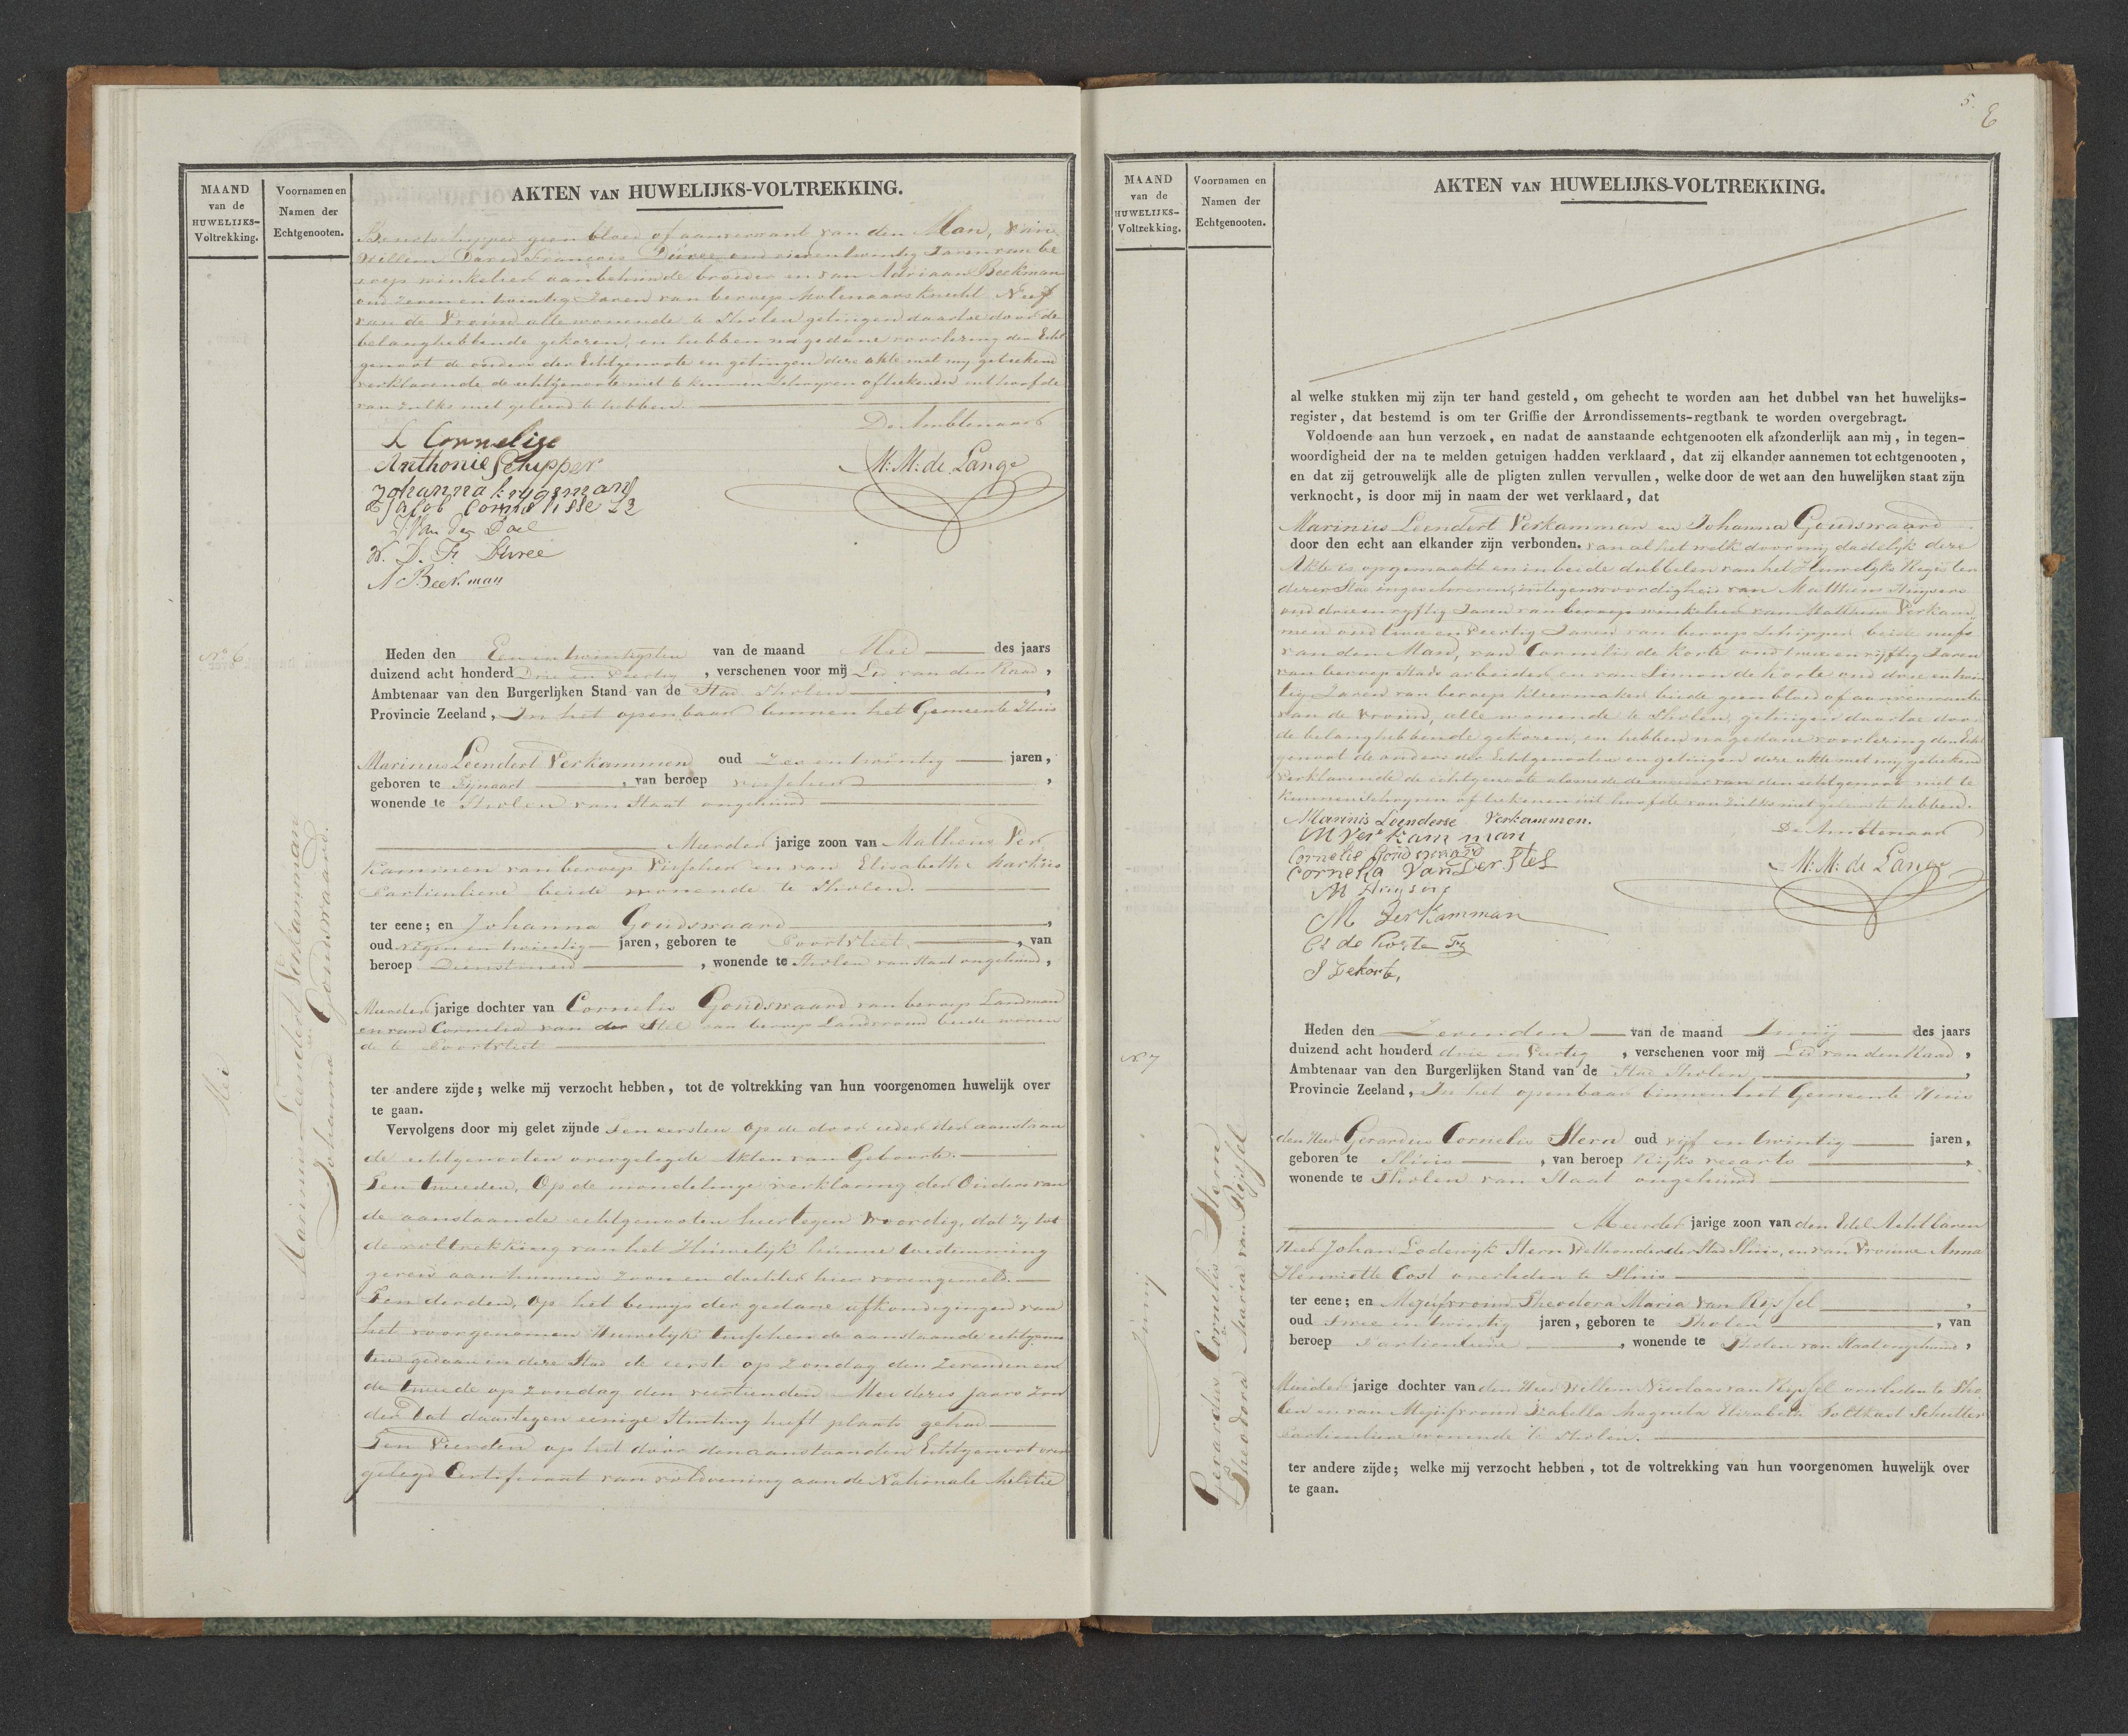 MAAND
van de
HUWELIJKS-
Voltrekking.
Voornamen en
Namen der
Echtgenooten.
AKTEN VAN HUWELIJKS-VOLTREKKING.
geen bloed of aanverwant van den Man, van
Willem David Francois Duree oud Jaren van be
roep winkelier aanbehuwde broeder en van Adriaan Beekman
oud zeven en twintig Jaren van beroep Molenaars knecht Neef
van de Vrouw alle wonende te Tholen getuigen daartoe door de
belanghebbende gekozen, en hebben na gedane voorlezing den Echt
genoot de ouders der Echtgenoote en getuigen deze akte met mij getekend
verklarende de echtgenoote niet te kunnen schrijven of tekenen uit hoofde
van zulks niet geleerd te hebben.
De Ambtenaar
L Cornelise
Anthonie Schipper
M: M: de Lange
Johanna krijgsman
Jacob Cornelisse Lz
J Van der Doel
W. D. F. Duree
A Beekman
No 6
Mei
Marinus Leendert Verkamman
en
Johanna Goudswaard.
Heden den Een en twintigsten van de maand Mei des jaars
duizend acht honderd Drie en Veertig , verschenen voor mij Lid van den Raad ,
Ambtenaar van den Burgerlijken Stand van de Stad Tholen ,
Provincie Zeeland, In het openbaar binnen het Gemeente Huis
Marinus Leendert Verkammen oud Zes en twintig jaren,
geboren te Fijnaart , van beroep visscher ,
wonende te Tholen van Staat ongehuwd
Meerder jarige zoon van Matheus Ver
kammen van beroep Visscher en van Elisabeth Markus
Particuliere beide wonende te Tholen.
ter eene; en Johanna Goudswaard ,
oud negen en twintig jaren, geboren te Poortvliet , van
beroep Dienstmeid , wonende te Tholen van Staat ongehuwd,
Meerder jarige dochter van Cornelis Goudswaard van beroep Landman
en van Cornelia van der Stel van beroep Landvrouw beide wonen
de te Poortvliet
ter andere zijde; welke mij verzocht hebben, tot de voltrekking van hun voorgenomen huwelijk over
te gaan.
Vervolgens door mij gelet zijnde Ten eersten op de door ieder der aanstaan
de echtgenooten overgelegde Akten van Geboorte.
Ten tweeden, Op de mondelinge verklaring der Ouders van
de aanstaande echtgenooten hier tegen woordig, dat zij tot
de voltrekking van het Huwelijk hunne toestemming
geven aan hunnen zoon en dochter hier vorengemeld.
Ten derden, Op het bewijs der gedane afkondigingen van
het voorgenomen Huwelijk tusschen de aanstaande echtgenoo
ten gedaan in deze Stad de eerste op Zondag den Zevenden en
de tweede op Zondag den veertienden Mei dezes Jaars zon
der dat daartegen eenige Stuiting heeft plaats gehad
Ten Vierden op het door den aanstaanden Echtgenoot over
gelegd Certificaat van voldoening aan de Nationale Militie
5. 6
MAAND
van de
HUWELIJKS-
Voltrekking.
Voornamen en
Namen der
Echtgenooten.
AKTEN VAN HUWELIJKS-VOLTREKKING.
al welke stukken mij zijn ter hand gesteld, om gehecht te worden aan het dubbel van het huwelijks-
register, dat bestemd is om ter Griffie der Arrondissements-regtbank te worden overgebragt.
Voldoende aan hun verzoek, en nadat de aanstaande echtgenooten elk afzonderlijk aan mij, in tegen-
woordigheid der na te melden getuigen hadden verklaard, dat zij elkander aannemen tot echtgenooten,
en dat zij getrouwelijk alle de pligten zullen vervullen, welke door de wet aan den huwelijken staat zijn
verknocht, is door mij in naam der wet verklaard, dat
Marinus Leendert Verkamman en Johanna Goudswaard
door den echt aan elkander zijn verbonden. van al het welk door mij dadelijk deze
Akte is opgemaakt en in beide dubbelen van het Huwelijks Register
dezer Stad ingeschreven, in tegenwoordigheid van Matheus Huijsers
oud drie en vyftig Jaren van beroep winkelier van Matheus Verkam
men oud twee en veertig Jaren van beroep Schipper beide neefs
van den Man, van Cornelis de Korte oud twee en vyftig Jaren
van beroep Stads arbeider, en van Simon de Korte oud drie en twin
tig Jaren van beroep kleermaker beide geen bloed of aanverwanten
van de Vrouw, alle wonende te Tholen, getuigen daartoe door
de belanghebbende gekozen, en hebben na gedane voorlezing den Echt
genoot de ouders der Echtgenooten en getuigen deze akte met mij getekend
Verklarende de echtgenoote alsmede de moeder van den echtgenoot niet te
kunnen schryven of tekenen uit hoofde van zulks niet geleerd te hebben.
Marinis Leenderse Verkammen.
De Ambtenaar
M Verkamman
Cornelis Goudswaard
M: M: de Lange
Cornelia Van Der Stel
M Huijsers
M Verkamman
Cs de Korte Fz
S Dekorte,
No 7
Junij
Gerardus Cornelis Stern
en
Theodora Maria van Rijssel
Heden den Zevenden van de maand Junij des jaars
duizend acht honderd drie en Veertig , verschenen voor mij Lid van den Raad ,
Ambtenaar van den Burgerlijken Stand van de Stad Tholen ,
Provincie Zeeland, In het openbaar binnen het Gemeente Huis
den Heer Gerardus Cornelis Stern oud vijf en twintig jaren,
geboren te Sluis , van beroep Rijks veearts ,
wonende te Tholen van Staat ongehuwd
Meerder jarige zoon van den Edel Achtbaren
Heer Johan Lodewijk Stern Wethouder der Stad Sluis, en van Vrouwe Anna
Henriette Cost overleden te Sluis
ter eene; en Mejufvrouw Theodora Maria van Rijssel ,
oud Twee en twintig jaren, geboren te Tholen , van
beroep Particuliere , wonende te Tholen van Staat ongehuwd,
Minder jarige dochter van den Heer Willem Nicolaas van Rijssel overleden te Tho
len en van Mejufvrouw Isabella Magneta Elizabeth Schutter
particuliere wonende te Tholen.
ter andere zijde; welke mij verzocht hebben, tot de voltrekking van hun voorgenomen huwelijk over
te gaan.